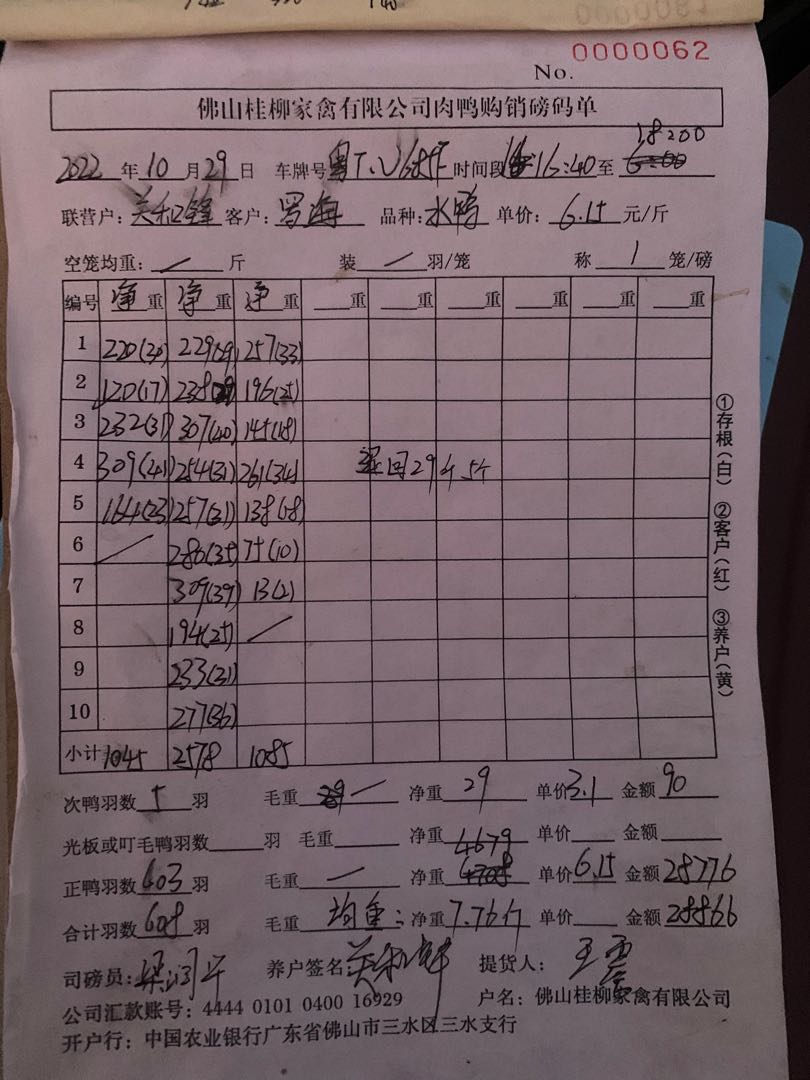 No. 0000062
佛山桂柳家禽有限公司肉鸭购销磅码单
2022 年 10 月 29 日 车牌号 粤T 时间段 16:40 至 18:00
联营户: 客户: 罗海 品种: 水鸭 单价: 6.15 元/斤
空笼均重: / 斤 装 / 羽/笼 称 1 笼/磅
编号 净重 净重 净重 重 重 重 重 重
1 220(30) 229(29) 257(33)
2 120(17) 238(29) 196(25)
3 232(31) 307(40) 145(18)
4 309(41) 254(31) 261(34) 29斤 5个
5 164(23) 257(31) 138(18)
6 / 280(35) 75(10)
7 309(39) 13(2)
8 194(25) /
9 233(31)
10 277(36)
小计 1045 2578 1085
次鸭羽数 5 羽 毛重 / 净重 29 单价 3.1 金额 90
光板或叮毛鸭羽数 羽 毛重 净重 单价 金额
正鸭羽数 603 羽 毛重 / 净重 4679 4708 单价 6.15 金额 28776
合计羽数 608 羽 毛重 均重: 净重 7.76斤 单价 金额 28866
司磅员: 养户签名 提货人:
公司汇款账号: 4444 0101 0400 16929 户名: 佛山桂柳家禽有限公司
开户行: 中国农业银行广东省佛山市三水区三水支行
①存根(白) ②客户(红) ③养户(黄)